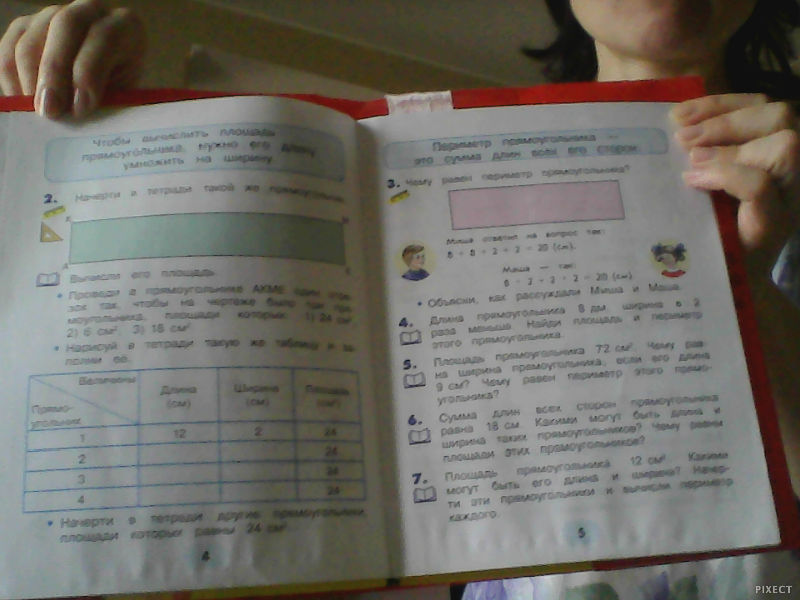 Чтобы вычислить площадь
прямоугольника, нужно его длину
умножить на ширину.
2. Начерти в тетради такой же прямоугольник.
Вычисли его площадь.
• Проведи в прямоугольнике АКМЕ один отре-
зок так, чтобы на чертеже было три пря-
моугольника, площади которых: 1) 24 см²,
2) 6 см², 3) 18 см².
• Нарисуй в тетради такую же таблицу и за-
полни её.
Величины
Прямо-
угольник
Длина
(см)
Ширина
(см)
Площадь
(см²)
1 12 2 24
2 24
3 24
4 24
• Начерти в тетради другие прямоугольники,
площади которых равны 24 см².
4
Периметр прямоугольника —
это сумма длин всех его сторон.
3. Чему равен периметр прямоугольника?
Миша ответил на вопрос так:
8 + 8 + 2 + 2 = 20 (см).
Маша — так:
8 + 2 + 8 + 2 = 20 (см).
• Объясни, как рассуждали Миша и Маша.
4. Длина прямоугольника 8 дм, ширина в 2
раза меньше. Найди площадь и периметр
этого прямоугольника.
5. Площадь прямоугольника 72 см². Чему рав-
на ширина прямоугольника, если его длина
9 см? Чему равен периметр этого прямо-
угольника?
6. Сумма длин всех сторон прямоугольника
равна 18 см. Какими могут быть длина и
ширина таких прямоугольников? Чему равны
площади этих прямоугольников?
7. Площадь прямоугольника 12 см². Какими
могут быть его длина и ширина? Начер-
ти эти прямоугольники и вычисли периметр
каждого.
5
PIXECT